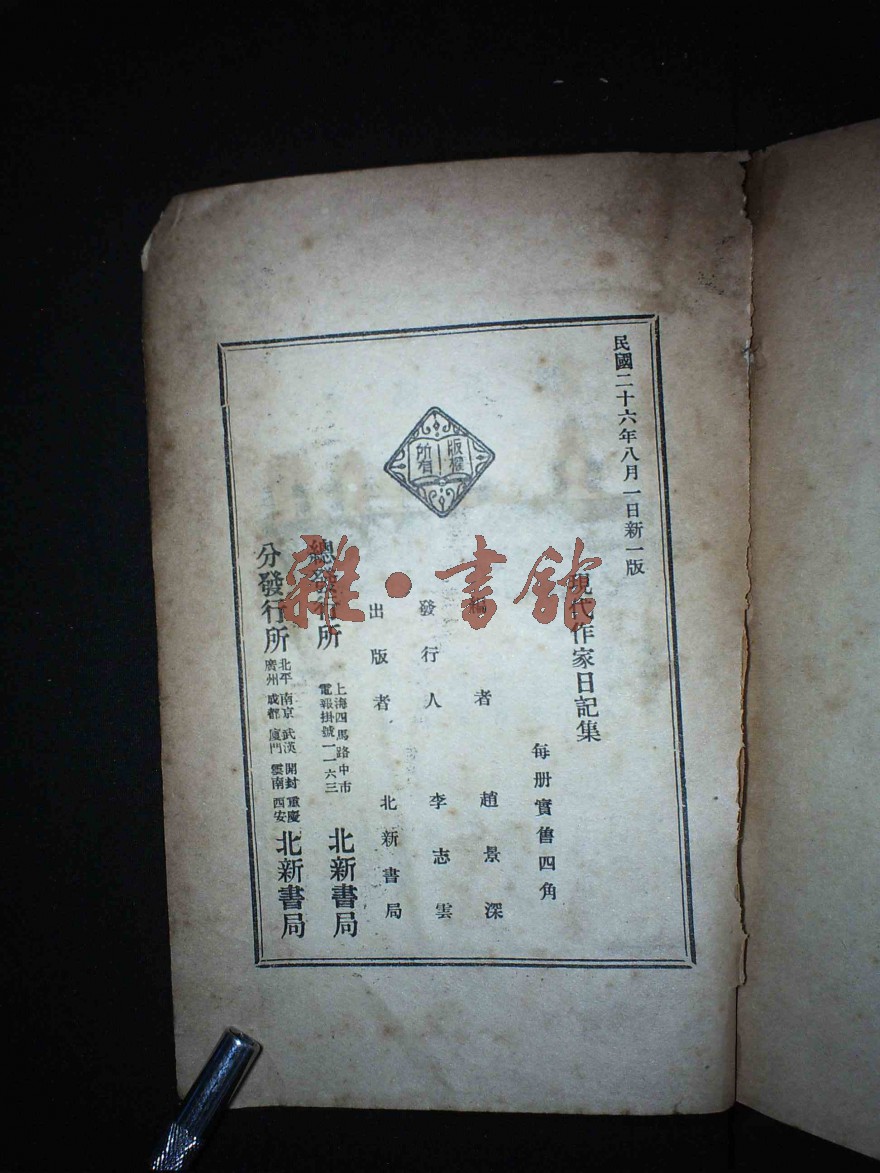 民國二十六年八月一日新一版
現代作家日記集
每册實售四角
編者 趙景深
發行人 李志雲
出版者 北新書局
總發行所 上海四馬路中市 電報掛號一一六三 北新書局
分發行所 北平 南京 武漢 開封 重慶 廣州 成都 廈門 雲南 西安 北新書局
版權
所有
雜·書館